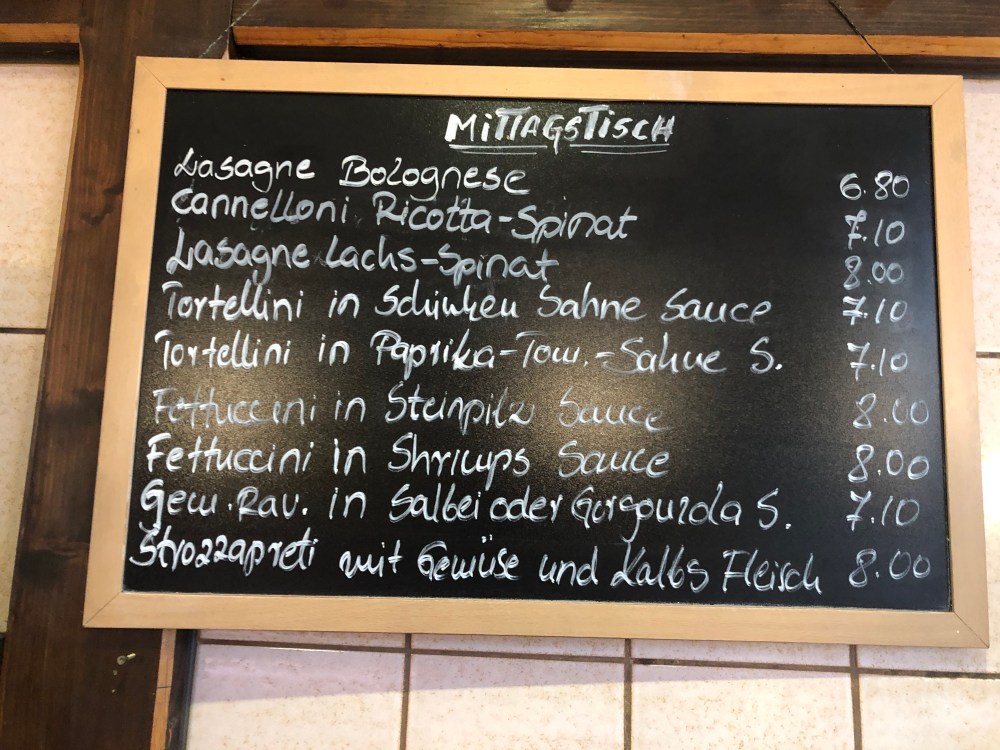 MITTAGSTISCH
Lasagne Bolognese 6.80
Cannelloni Ricotta-Spinat 7.10
Lasagne Lachs-Spinat 8.00
Tortellini in Schinken Sahne Sauce 7.10
Tortellini in Paprika-Tom.-Sahne S. 7.10
Fettuccini in Steinpilz Sauce 8.00
Fettuccini in Shrimps Sauce 8.00
Gem. Rav. in Salbei oder Gorgonzola S. 7.10
Strozzapreti mit Gemüse und Kalbs Fleisch 8.00